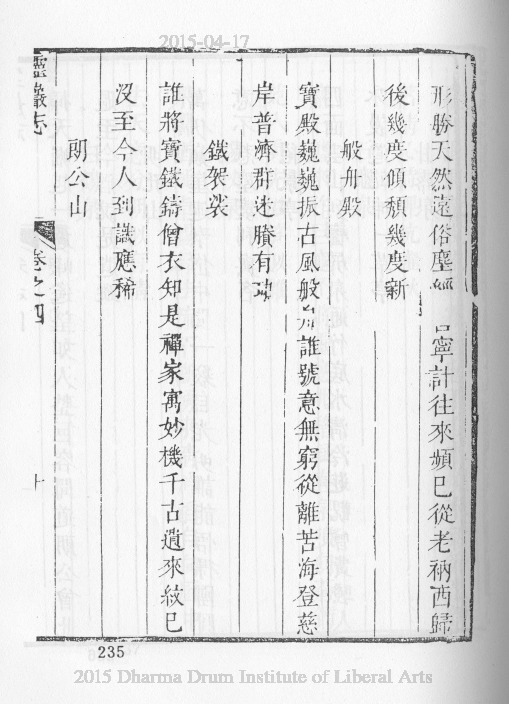 2015-04-17
形勝天然遠俗塵 寧計往來頻已從老衲西歸
後幾度傾頹幾度新
般舟殿
寶殿巍巍振古風般舟誰號意無窮從離苦海登慈
岸普濟群迷賸有功
鐵袈裟
誰將寶鐵鑄僧衣知是禪家寓妙機千古遺來紋已
沒至今人到識應稀
朗公山
靈巖志 卷之四 十
235
2015 Dharma Drum Institute of Liberal Arts